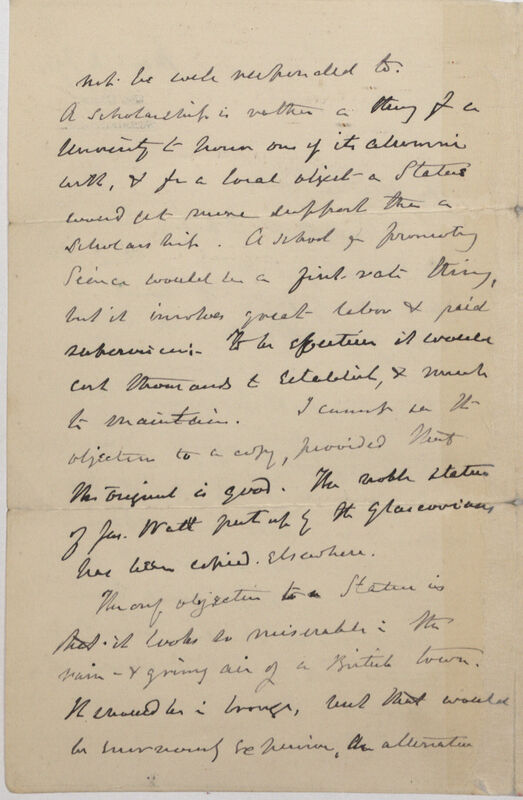 not be well responded to.
A scholarship is rather a thing for a
University to honor one of its alumni
with, & for a local object a Statue
would get more support than a
Scholarship. A school for promoting
Science would be a first-rate thing,
but it involves great labor & paid
supervision. To be effective it would
cost thousands to establish, & much
to maintain. I cannot see the
objection to a copy, provided that
the original is good. The noble statue
of Jas. Watt put up by the Glascovians
has been copied elsewhere.
The only objection to a Statue is
that it looks so miserable in the
rain & grimy air of a British town.
It should be in bronze, but that would
be enormously expensive, An alternative